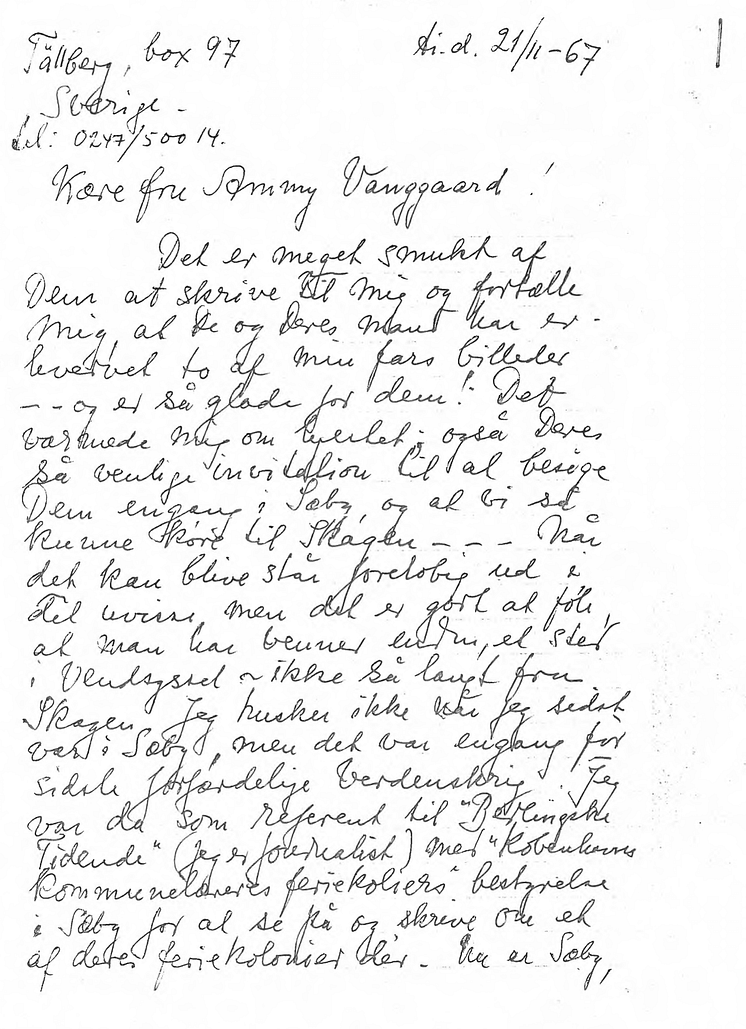 Tällberg, box 97 ti.d. 21/11-67
Sverige -
tel: 0247/50014.
Kære fru Ammy Vanggaard!
Det er meget smukt af
Dem at skrive til mig og fortælle
mig, at De og Deres mand har er-
hvervet to af min fars billeder
-- og er så glade for dem! Det
varmede mig om hjertet; også Deres
så venlige invitation til at besøge
Dem engang i Sæby, og at vi så
kunne køre til Skagen --- Når
det kan blive står foreløbig ud i
det uvisse, men det er godt at føle,
at man har venner endnu, et sted
i Vendsyssel ~ ikke så langt fra
Skagen. Jeg husker ikke når jeg sidst
var i Sæby, men det var engang før
sidste forfærdelige Verdenskrig. Jeg
var da som referent til "Berlingske
Tidende" (jeg er journalist) med "Københavns
Kommunelæreres feriekoliers" bestyrelse
i Sæby for at se på og skrive om et
af deres feriekolonier dér. Nu er Sæby,